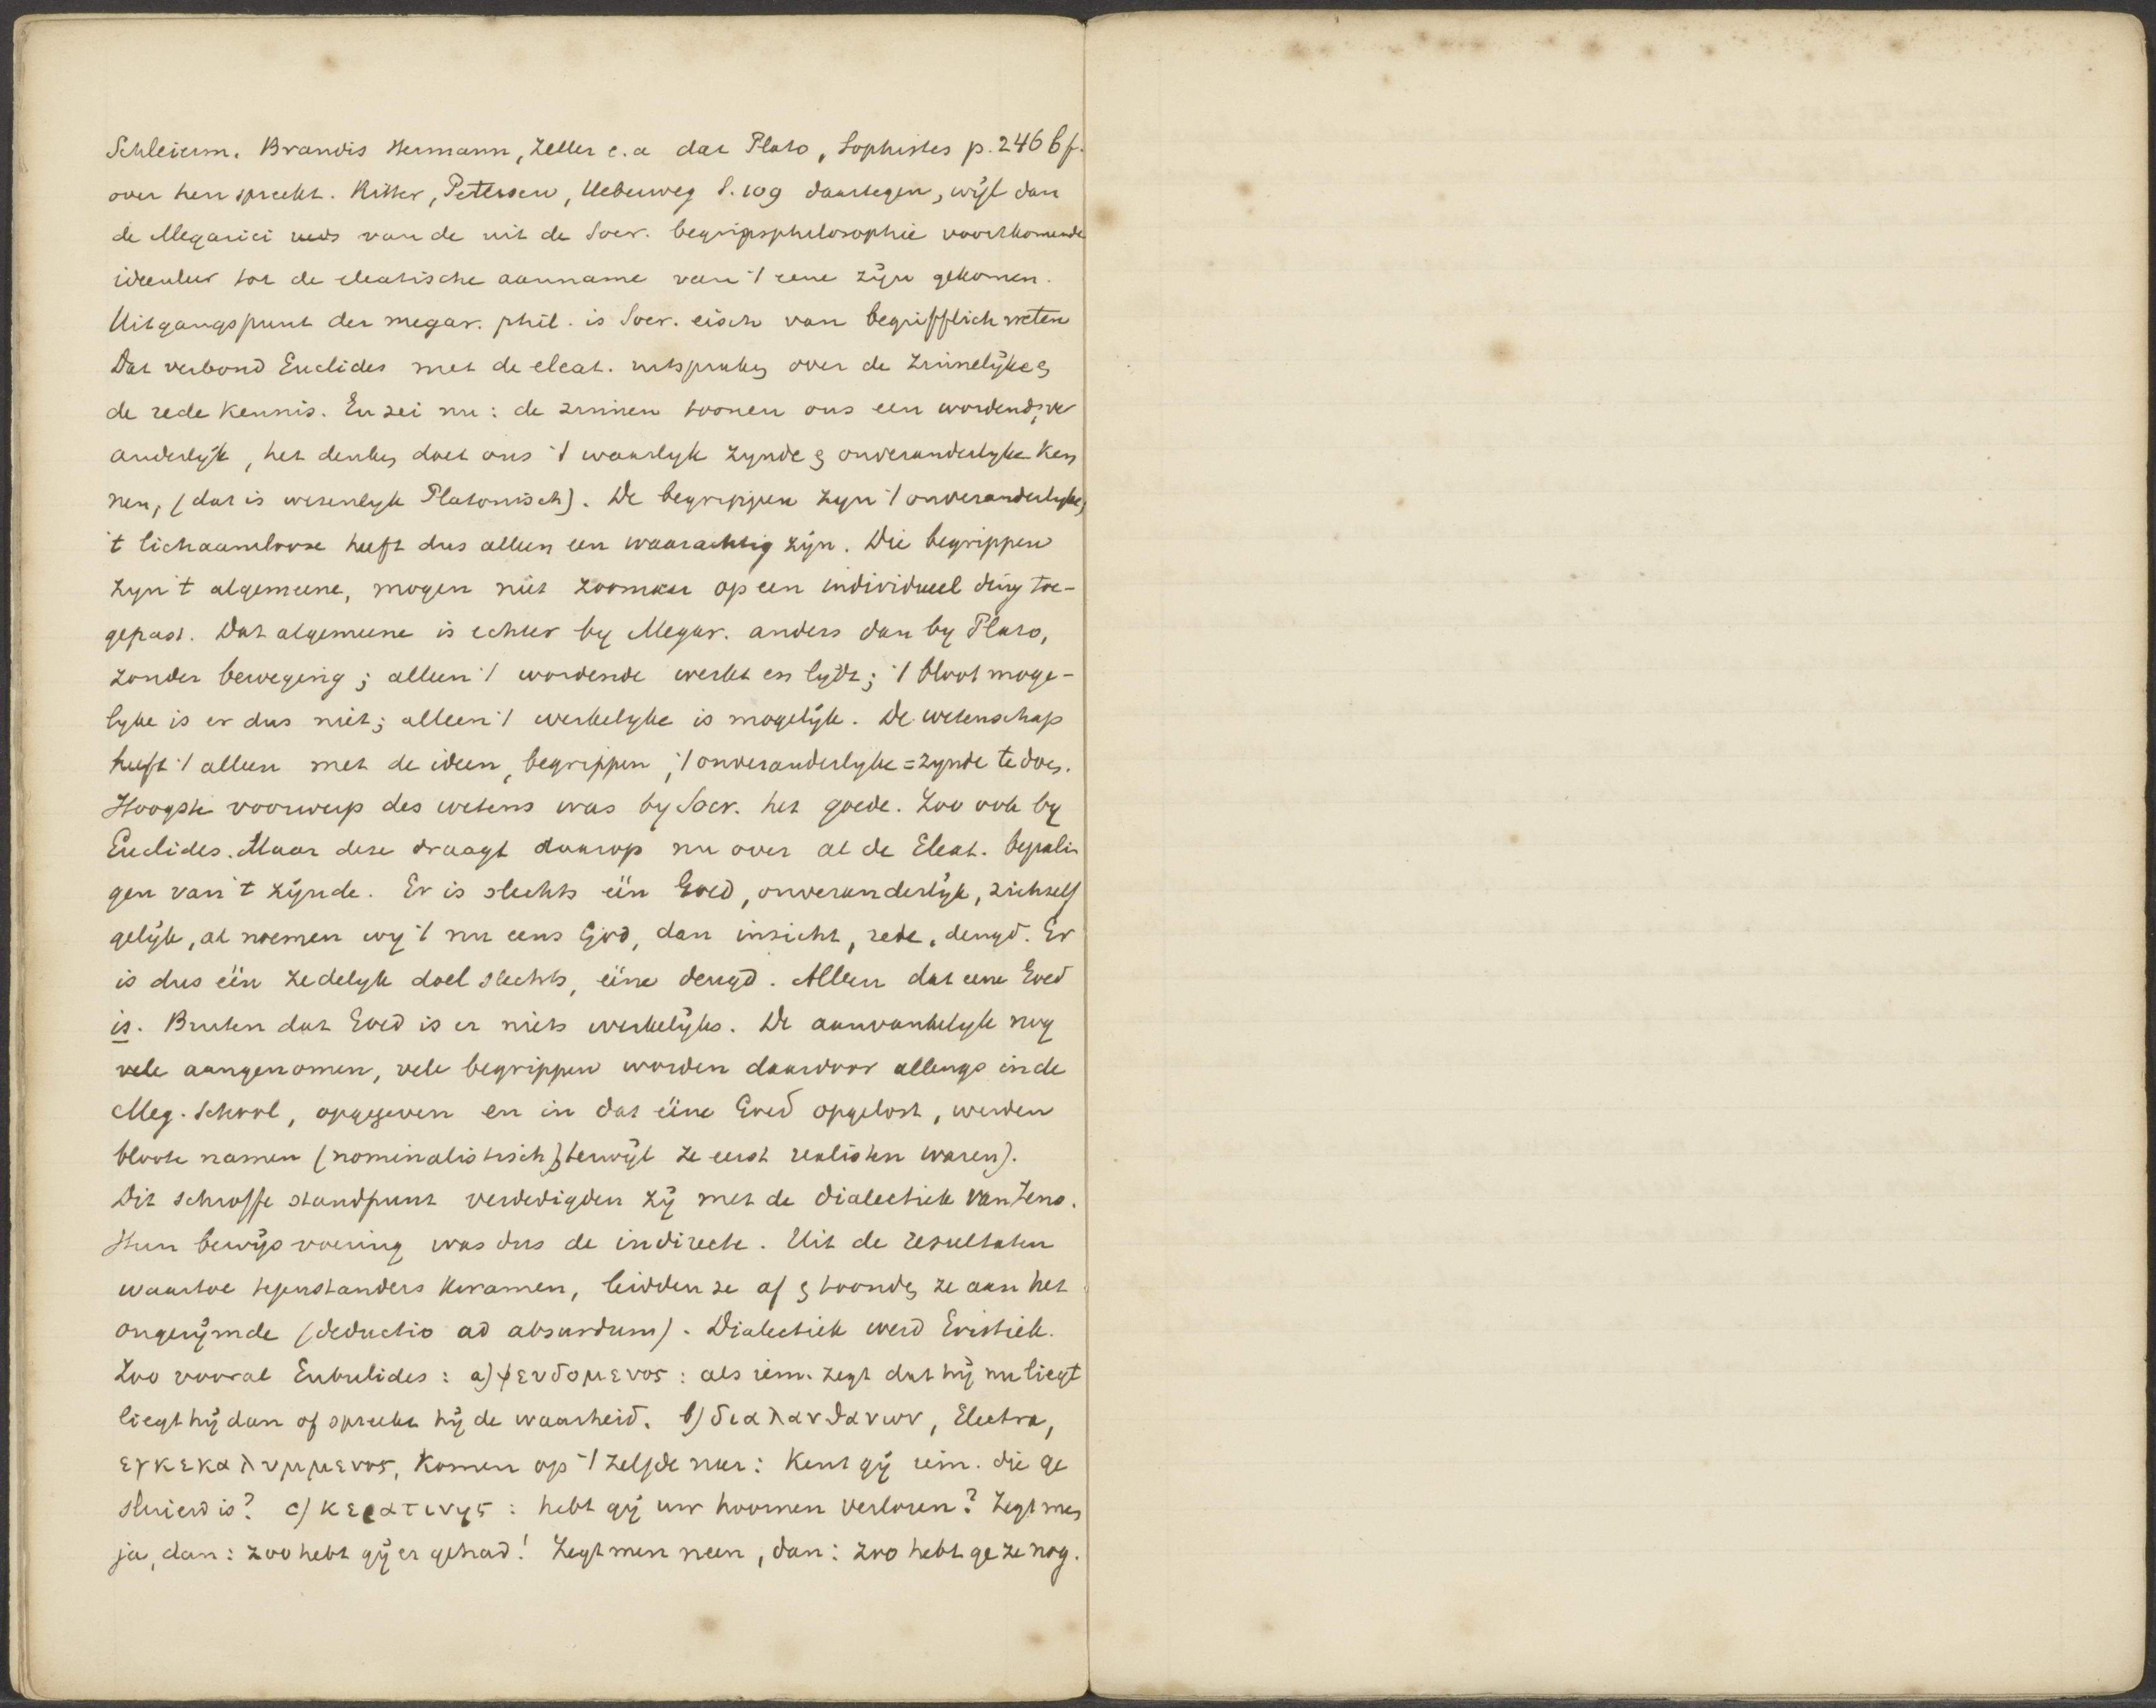 Schleierm. Brandis Hermann, Zeller e.a dat Plato, Sophistes p. 246 b f.
over hen spreekt. Ritter, Petersen, Ueberweg S. 109 daartegen, wijl dan
de Megarici reeds van de uit de Socr. begripsphilosophie voortkomende
ideenleer tot de eleatische aanname van 't eene zijn gekomen.
Uitgangspunt der megar. phil. is Socr. eisch van begrifflich weten
Dat verbond Euclides met de eleat. uitspraken over de zinnelijke &
de rede kennis. En zei nu: de zinnen toonen ons een wordend, ver
anderlijk, het denken doet ons 't waarlyk zynde & onveranderlyke ken
nen, (dat is wezenlyk Platonisch). De begrippen zyn 't onveranderlyke,
't lichaamlooze heeft dus alleen een waarachtig zijn. Die begrippen
zyn 't algemeene, mogen niet zoomaar op een individueel ding toe-
gepast. Dat algemeene is echter by Megar. anders dan by Plato,
zonder beweging; alleen 't wordende werkt en lydt; 't bloot moge-
lyke is er dus niet; alleen 't werkelyke is mogelijk. De wetenschap
heeft 't alleen met de ideen, begrippen, 't onveranderlyke = zynde te doen.
Hoogste voorwerp des wetens was by Socr. het goede. Zoo ook by
Euclides. Maar deze draagt daarop nu over al de Eleat. bepalin
gen van 't zijnde. Er is slechts één Goed, onveranderlijk, zichzelf
gelijk, al noemen wy 't nu eens God, dan inzicht, rede, deugd. Er
is dus één zedelyk doel slechts, ééne deugd. Alleen dat eene Goed
is. Buiten dat Goed is er niets werkelijks. De aanvankelyk nog
vele aangenomen, vele begrippen worden daardoor allengs in de
Meg. School, opgegeven en in dat ééne Goed opgelost, werden
bloote namen (nominalistisch), terwijl ze eerst realisten waren).
Dit schroffe standpunt verdedigden zij met de dialectiek van Zeno.
Hun bewijsvoering was dus de indirecte. Uit de resultaten
waartoe tegenstanders kwamen, leidden ze af & toonden ze aan het
ongerijmde (deductio ad absurdum). Dialectiek werd Eristiek.
Zoo vooral Eubulides: a) ψευδομενος: als iem. zegt dat hij nu liegt
liegt hij dan of spreekt hij de waarheid. b) διαλανθανων, Electra,
εγκεκαλυμμενος, komen op 't zelfde neer: Kent gij iem. die ge
sluierd is? c) κερατινης: hebt gij uw hoornen verloren? Zegt men
ja, dan: zoo hebt gij er gehad! Zegt men neen, dan: zoo hebt ge ze nog.